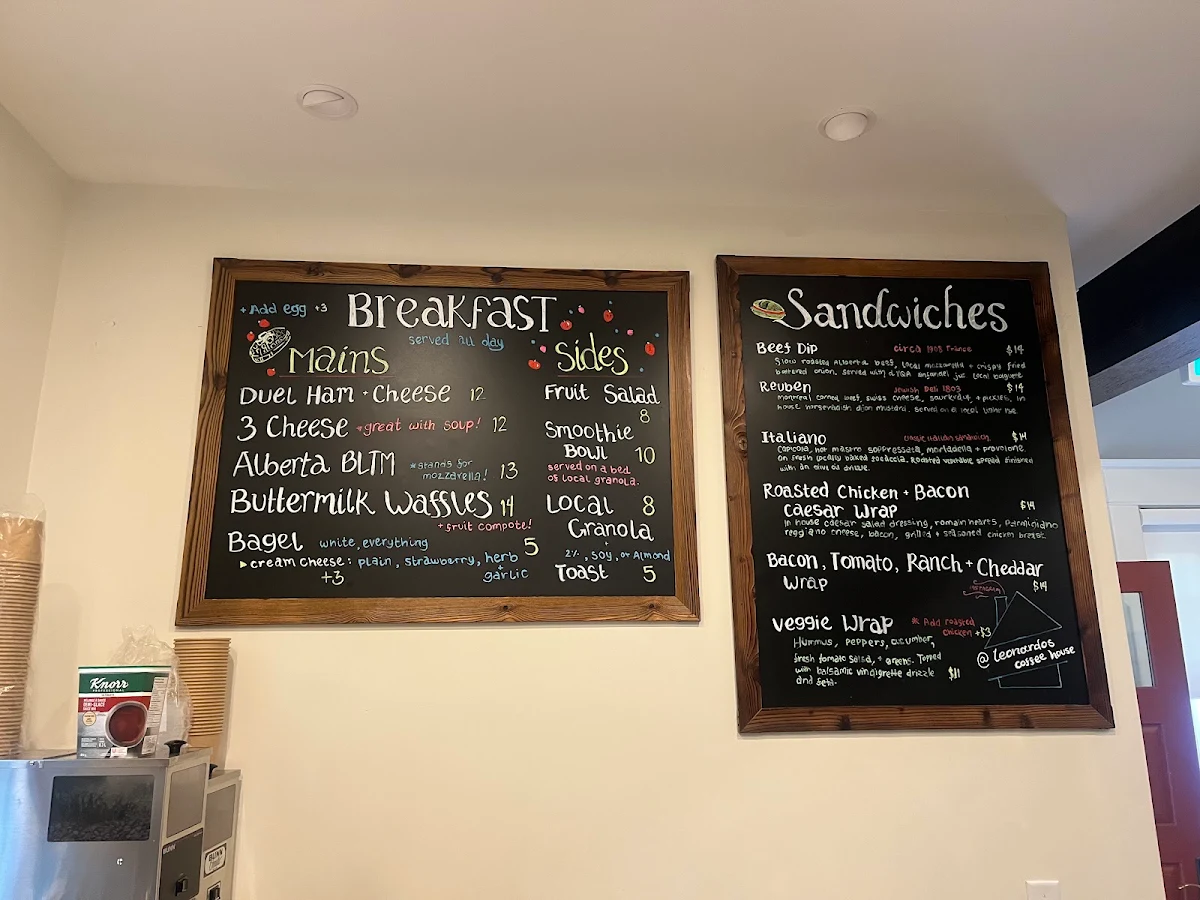 +Add egg +3
Breakfast
served all day
Mains
Duel Ham + Cheese 12
3 Cheese *great with soup! 12
Alberta BLTM *stands for mozzarella! 13
Buttermilk Waffles 14
+fruit compote!
Bagel white, everything 5
cream cheese: plain, strawberry, herb + garlic
+3
Sides
Fruit Salad
8
Smoothie
Bowl 10
served on a bed
of local granola.
Local 8
Granola
2%, soy, or Almond
Toast 5
Sandwiches
Beef Dip circa 1908 France $14
Slow roasted Alberta beef, local mozzarella + crispy fried
battered onion. Served with jus local baguette
Reuben Jewish Deli 1803 $14
montreal corned beef, swiss cheese, sauerkraut, + pickles, in
house horseradish dijon mustard. Served on a local
Italiano classic italian sandwich $14
Capicola, hot mastro soppressata, mortadella + provolone
on fresh locally baked focaccia. Roasted vegetable spread finished
with an olive oil drizzle.
Roasted Chicken + Bacon
caesar Wrap $14
In house caesar salad dressing, romain hearts, Parmigiano
reggiano cheese, bacon, grilled + seasoned chicken breast.
Bacon, Tomato, Ranch + Cheddar
Wrap $14
veggie Wrap * Add roasted
chicken +$3
Hummus, peppers, cucumber,
fresh tomato salsa, + greens. Topped
with balsamic vinaigrette drizzle $11
and feta.
INSTAGRAM
@leonardos
coffee house
Knorr
PROFESSIONAL
DEMI-GLACE
BUNN
BUNN